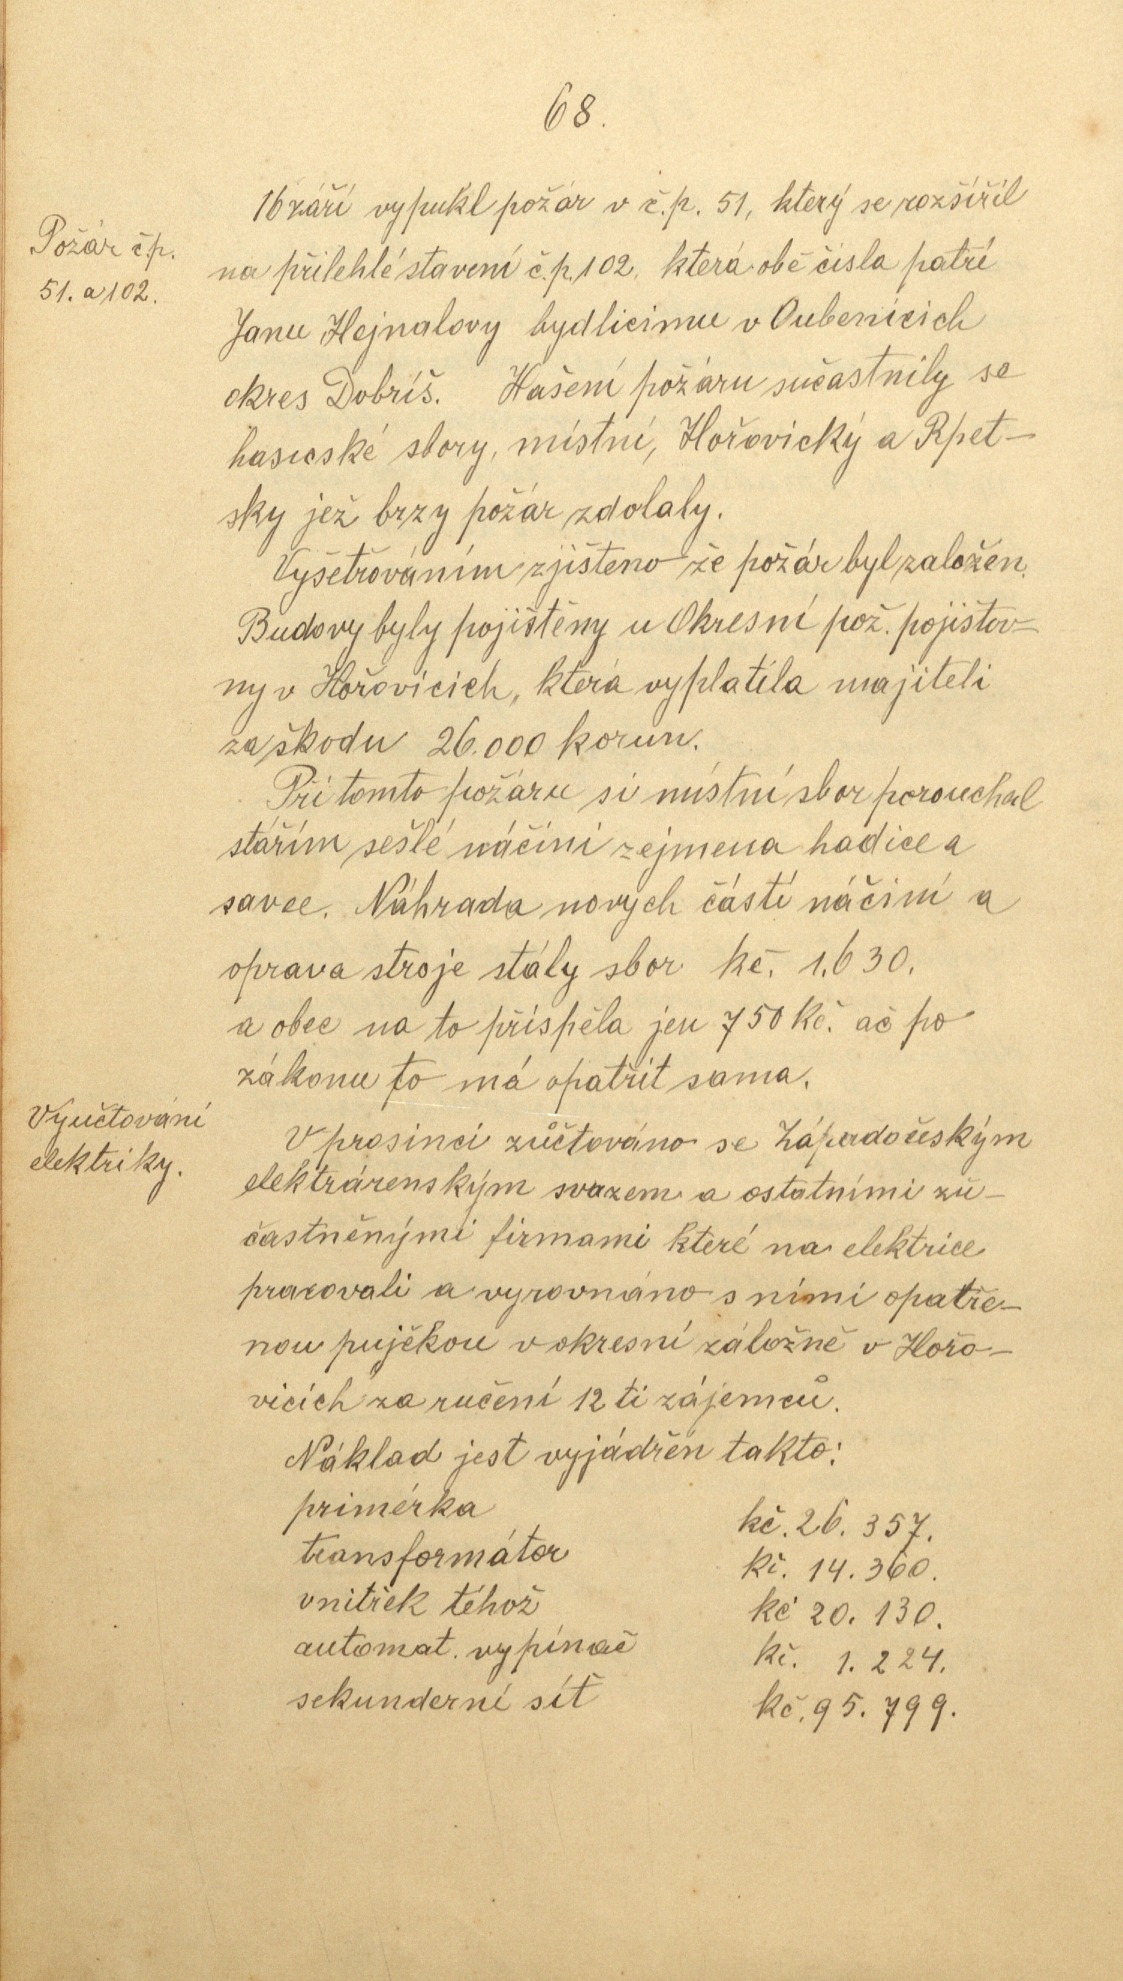 68.
Požár č.p.
51. a 102.
16 září vypukl požár v č.p. 51, který se rozšířil
na přilehlé stavení č.p. 102, která obě čísla patří
Janu Hejnalovy bydlicimu v Oubenicich
okres Dobříš. Hašení požáru sučastnily se
hasicské sbory, místní, Hořovický a Rpet-
sky jež brzy požár zdolaly.
Vyšetřováním zjišteno že požár byl založen.
Budovy byly pojištěny u Okresní pož. pojištov-
ny v Hořovicich, která vyplatila majiteli
za škodu 26.000 korun.
Při tomto požáru si místní sbor porouchal
stářím sešlé náčiní zejmena hadice a
savce. Náhrada nových částí náčiní a
oprava stroje stály sbor kč. 1.630.
a obec na to přispěla jen 750 kč. ač po
zákonu to má opatřit sama.
Vyučtování
elektriky.
V prosinci zůčtováno se Západočeským
elektrárenským svazem a ostatními zú-
častněnými firmami které na elektrice
pracovali a vyrovnáno s nimi opatře-
nou pujčkou v okresní záložně v Hořo-
vicích za ručení 12 ti zájemců.
Náklad jest vyjádřen takto:
primérka kč. 26. 357.
transformátor kč. 14. 360.
vnitřek téhož kč 20. 130.
automat. vypínač kč. 1. 224.
sekunderní síť kč. 95. 799.